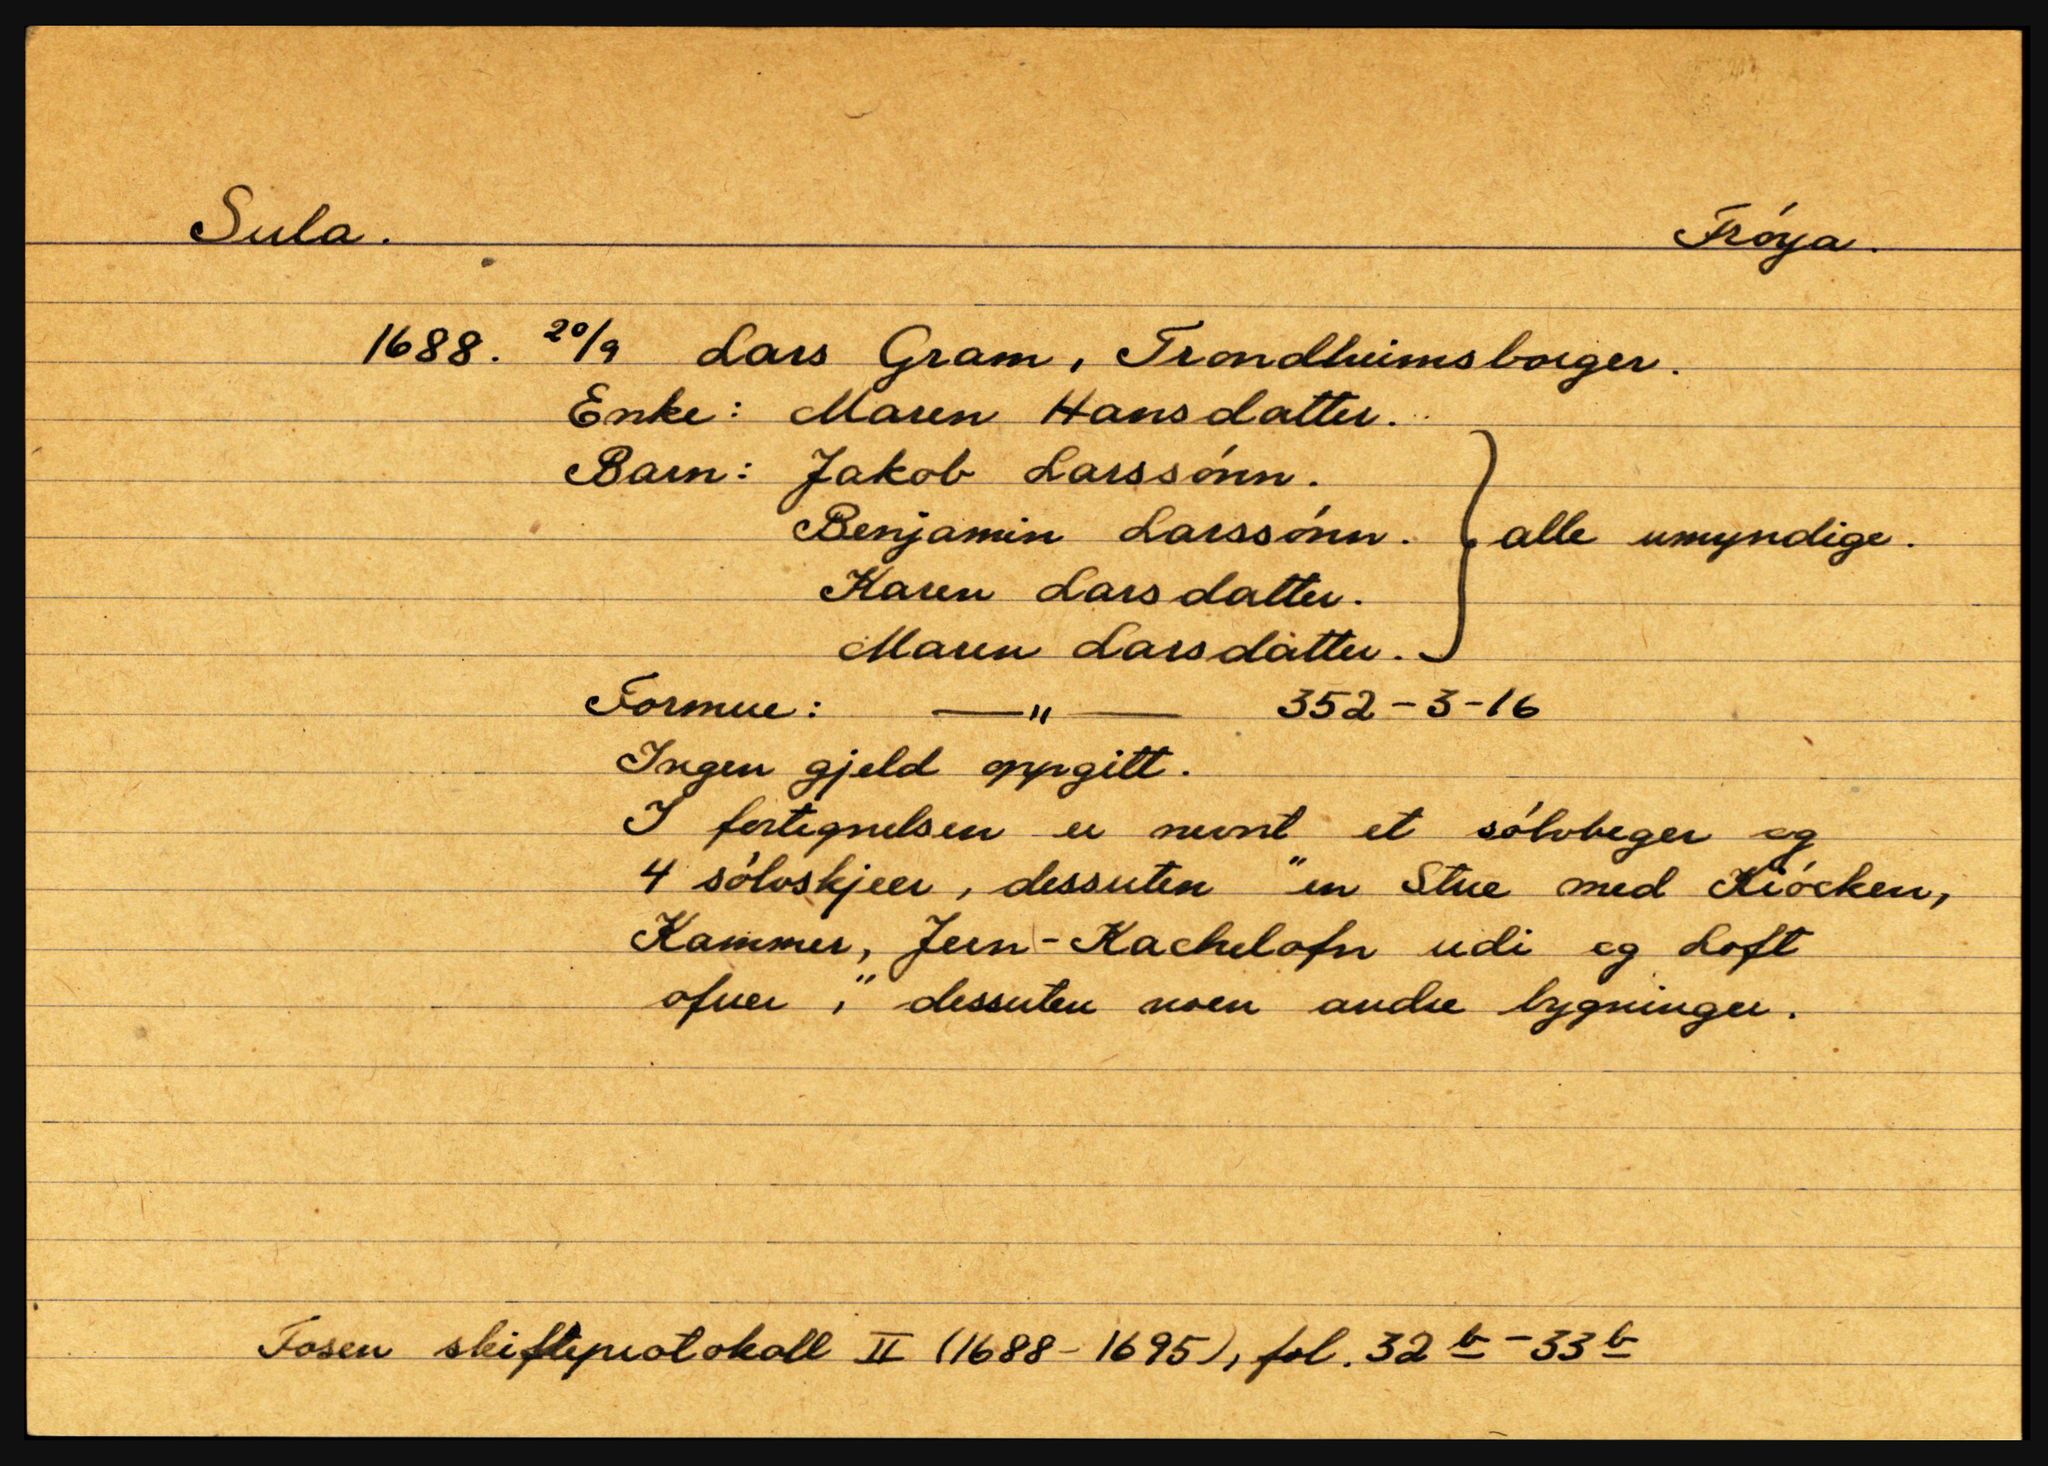 Sula. Fróya.
1688. 20/9 Lars Gram, Trondheimsborger.
Enke: Maren Hansdatter.
Barn: Jakob Larssónn.
Benjamin Larssónn. } alle umyndige.
Karen Larsdatter.
Maren Larsdatter.
Formue: —"— 352-3-16
Ingen gjeld oppgitt.
I fortegnelsen er nevnt et sólvbeger og
4 sólvskjeer, dessuten "en Stue med Kiócken,
Kammer, Jern-Kachelofn udi og Loft
ofuer," dessuten noen andre bygninger.
Fosen skifteprotokoll II (1688-1695), fol. 32b-33b